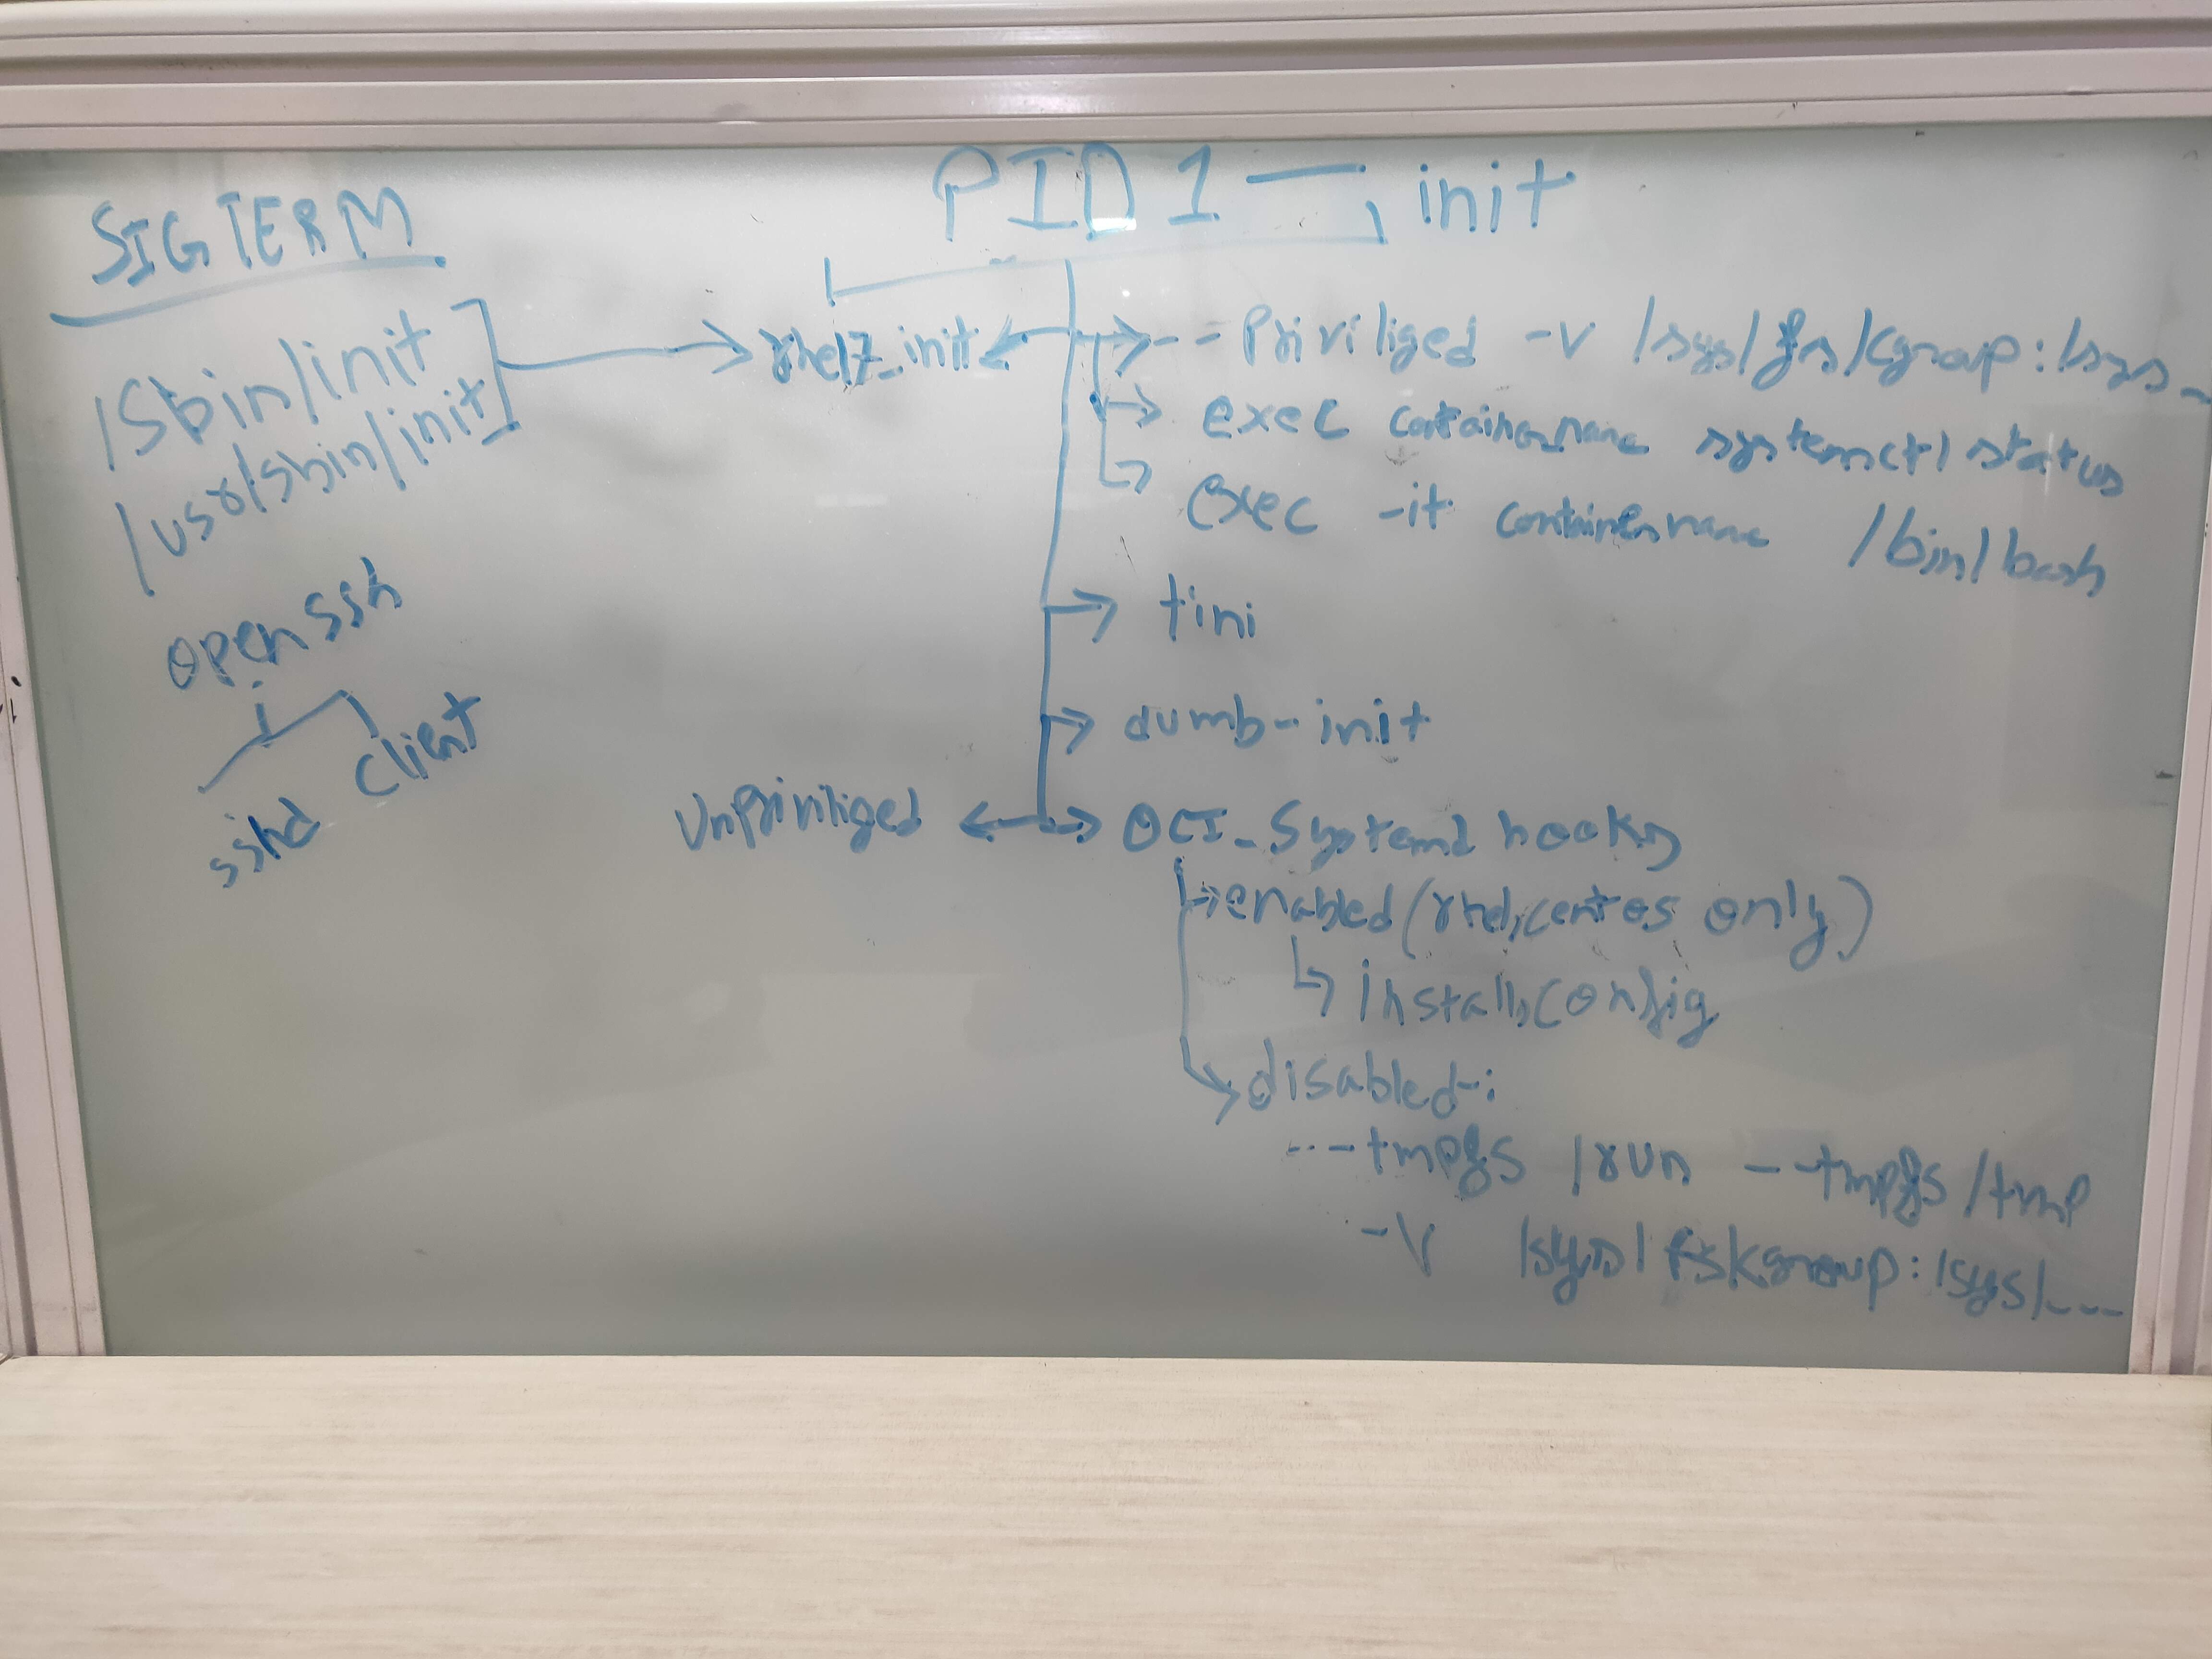 SIGTERM
/sbin/init
/usr/sbin/init
openssh
sshd client
PID 1 init
rhel7_init
--Priviliged -v /sys/fs/cgroup:/sys_
exec containername systemctl status
exec -it containername /bin/bash
tini
dumb-init
Unpriviliged
OCI_Systemd hooks
enabled(rhel,centos only)
install,config
disabled-:
--tmpfs /run --tmpfs /tmp
-v /sys/fs/cgroup:/sys/---